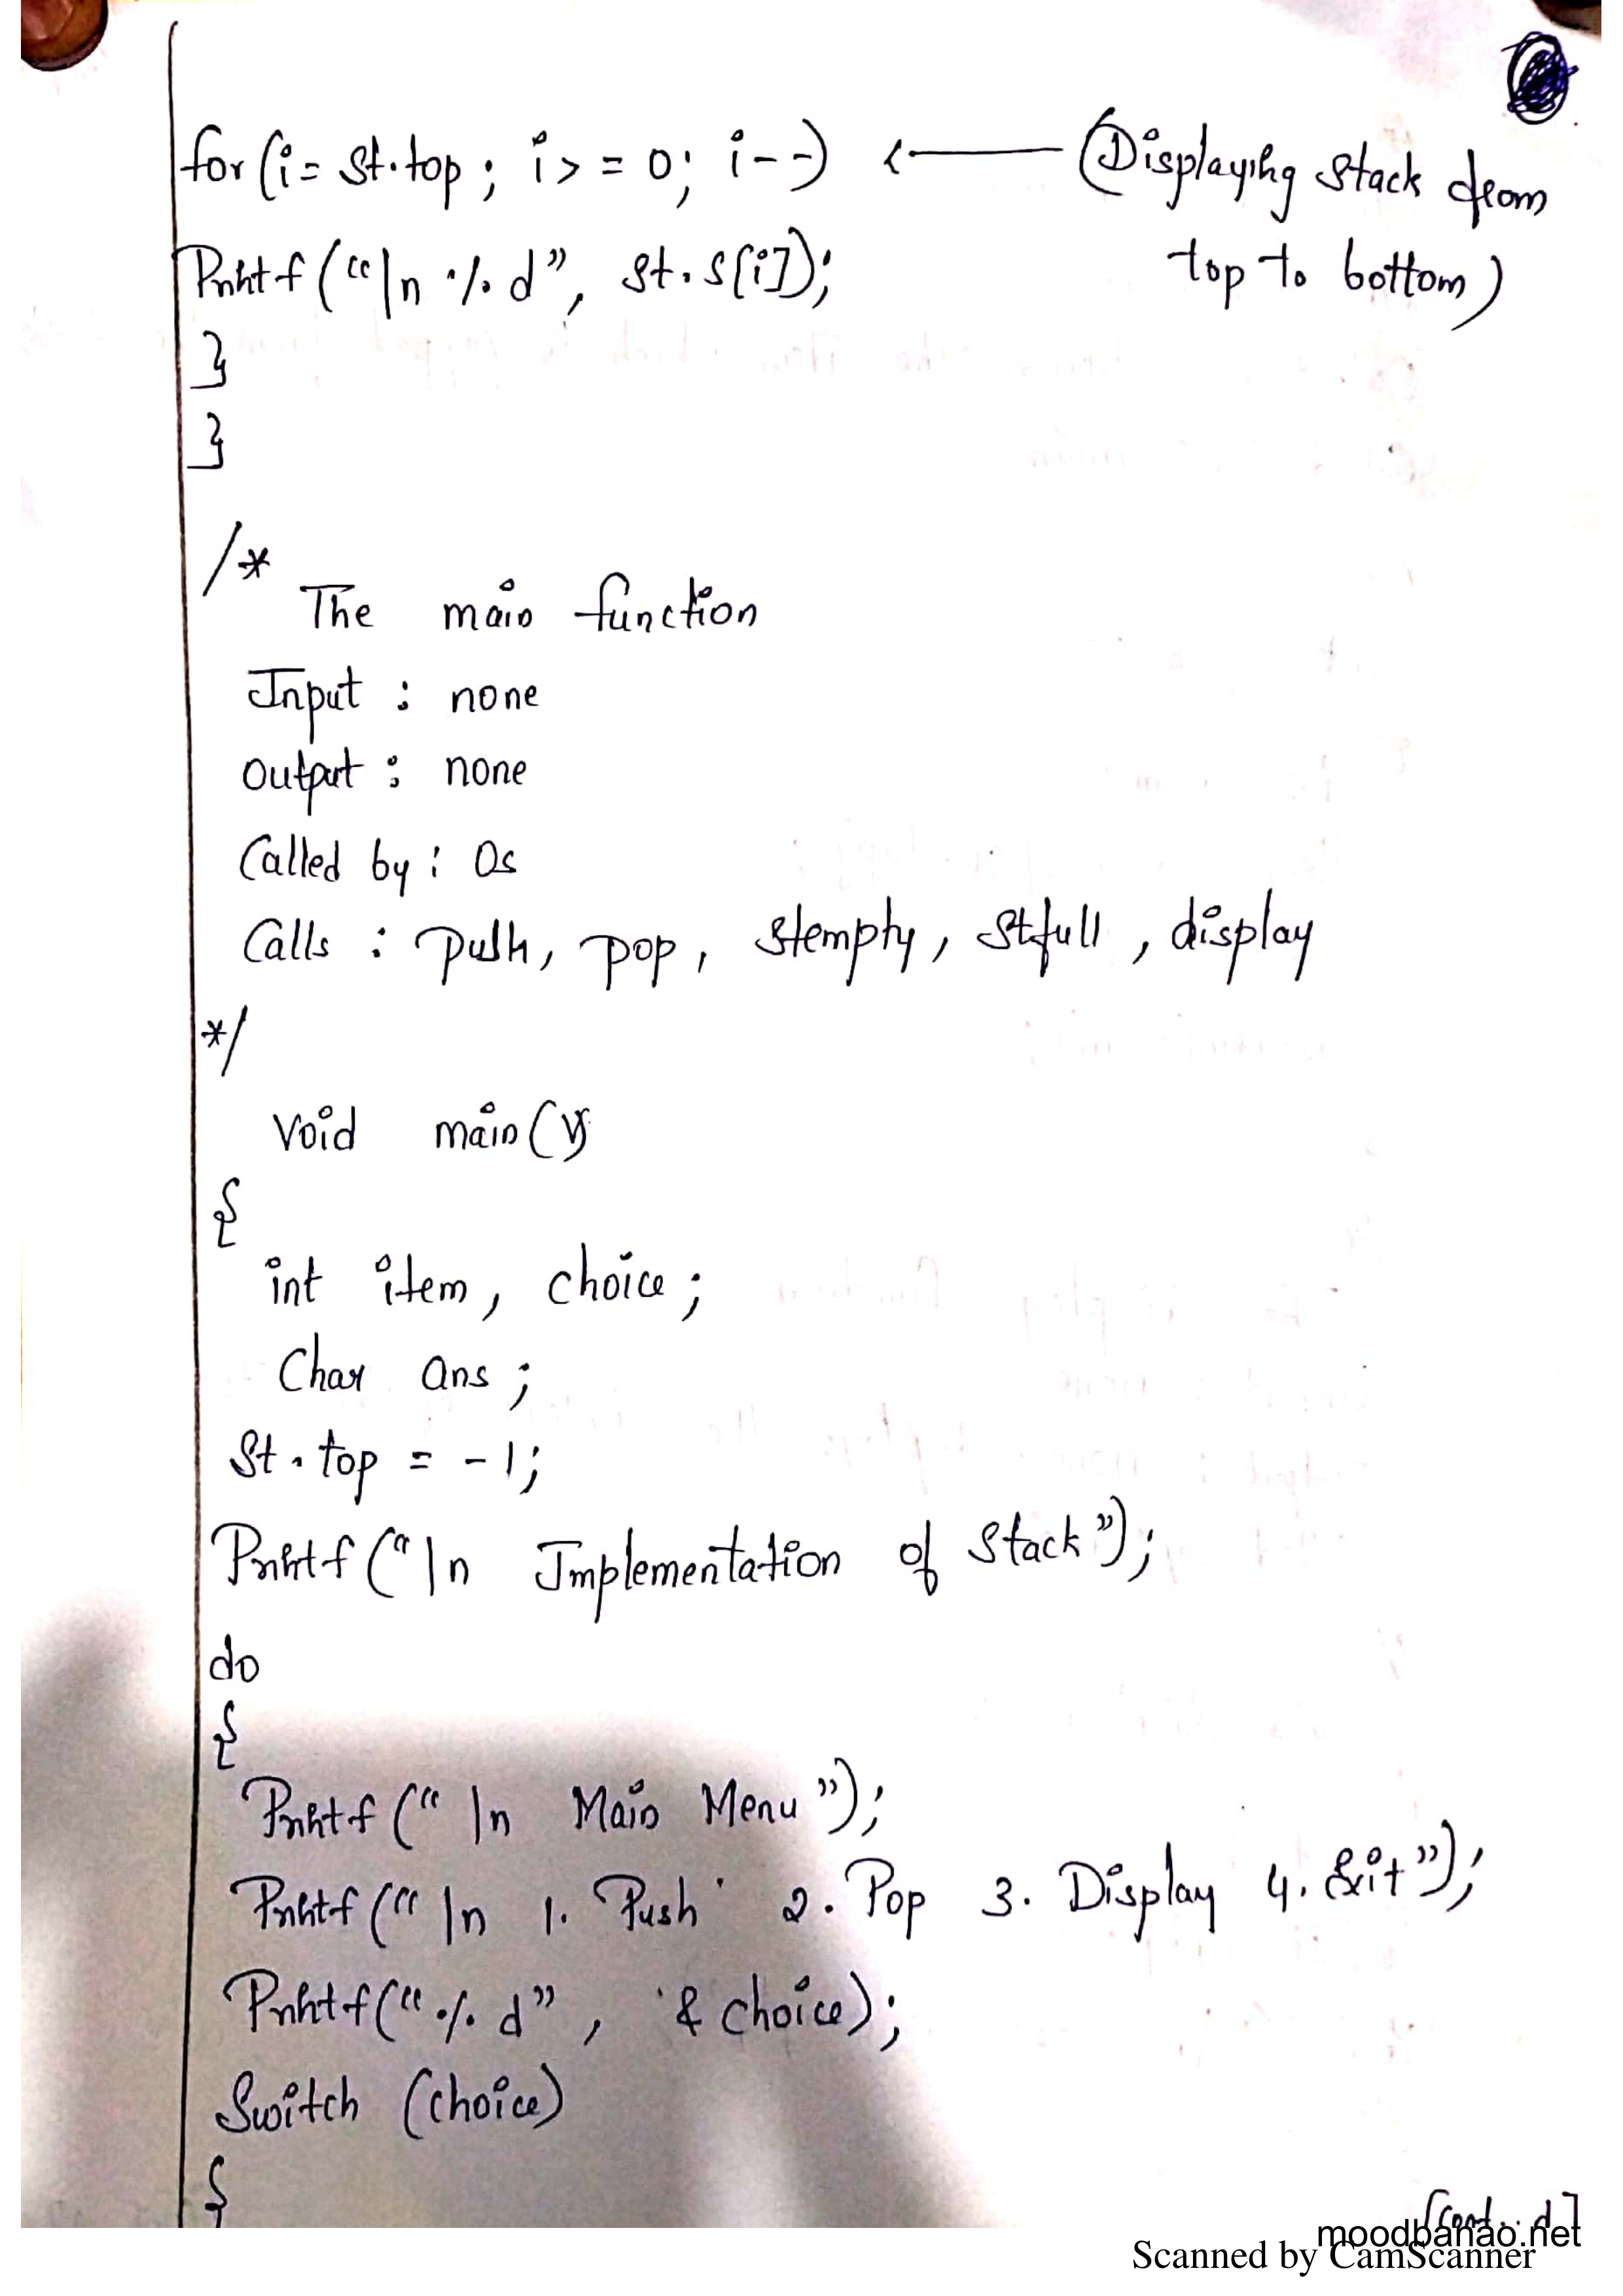 for (i = st.top ; i > = 0; i - -) ← (Displaying stack from
Printf ("\n % d", st.s[i]); top to bottom)
}
}
/*
The main function
Input : none
Output : none
Called by : Os
Calls : push, pop, stempty, stfull, display
*/
Void main()
{
int item, choice;
Char ans ;
St.top = -1;
Printf ("\n Implementation of Stack");
do
{
Printf (" \n Main Menu");
Printf (" \n 1. Push 2. Pop 3. Display 4. Exit");
Printf (" % d" , & choice);
Switch (choice)
{
[Cont...d]
moodbanao.net
Scanned by CamScanner